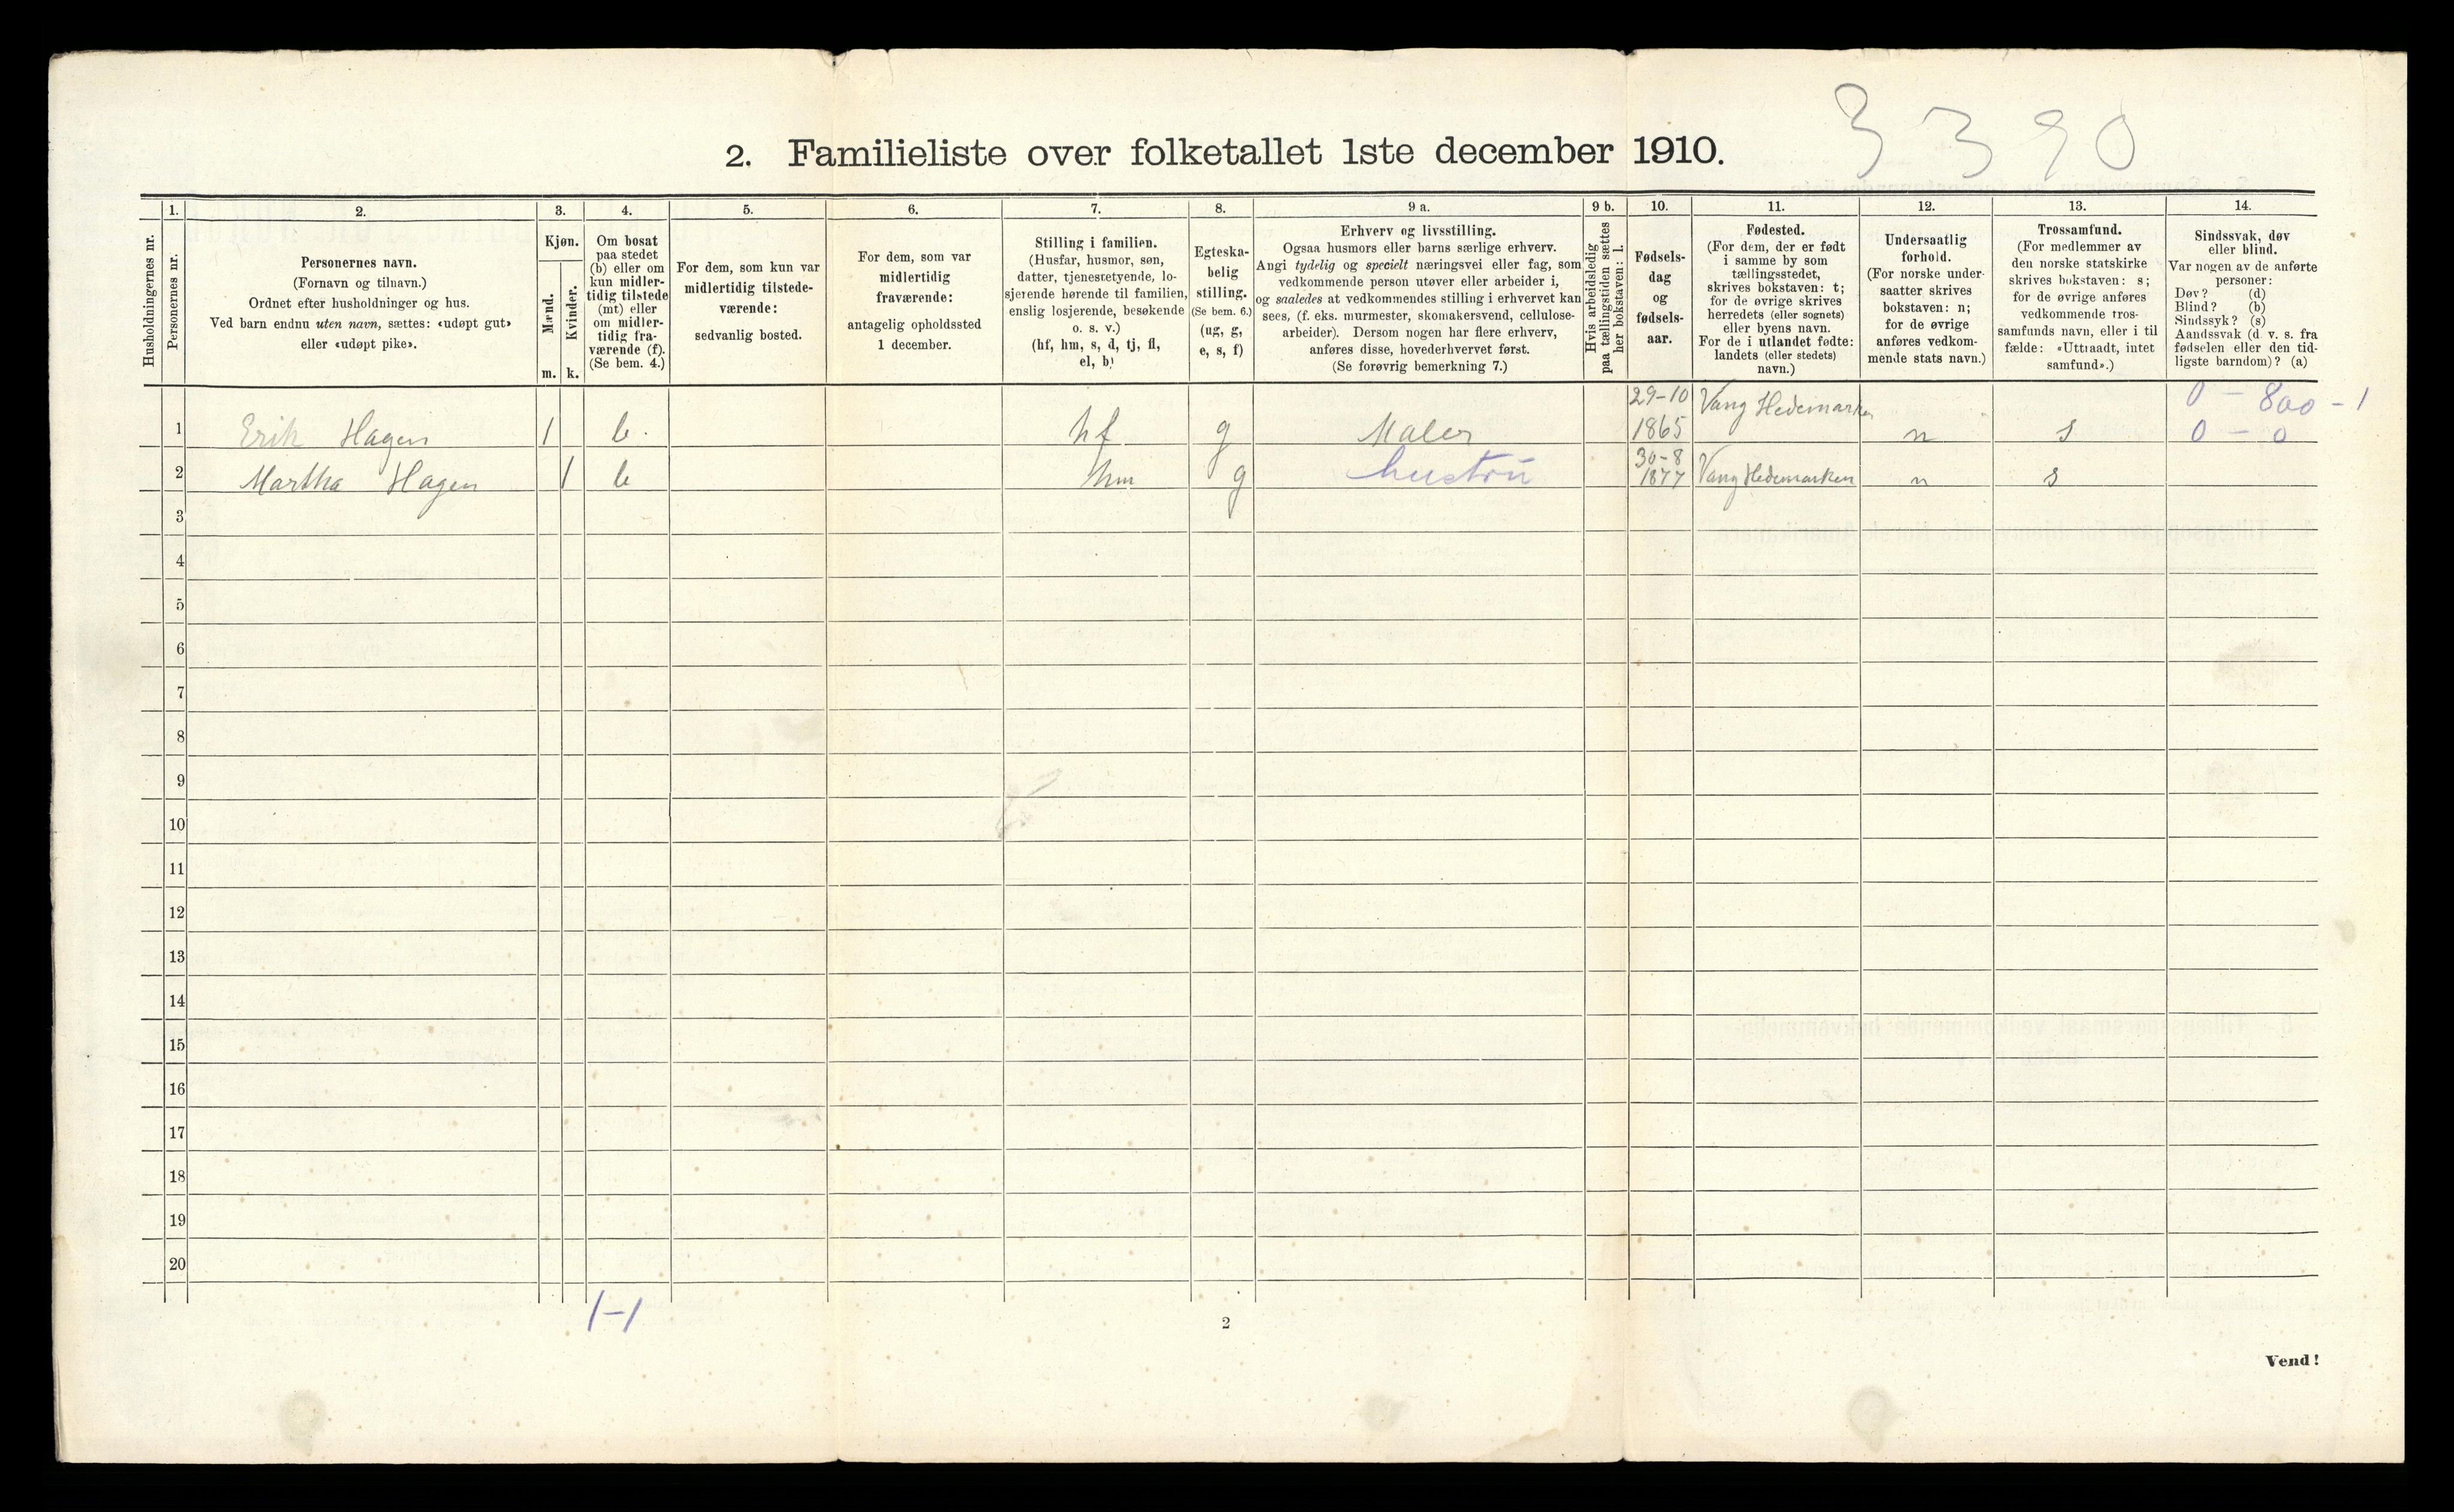 3390
2. Familieliste over folketallet 1ste december 1910.
1. 2. 3. 4. 5. 6. 7. 8. 9 a. 9 b. 10. 11. 12. 13. 14.
Husholdningernes nr.
Personernes nr.
Personernes navn.
(Fornavn og tilnavn.)
Ordnet efter husholdninger og hus.
Ved barn endnu uten navn, sættes: «udøpt gut»
eller «udøpt pike».
Kjøn.
Mænd.
Kvinder.
m. k.
Om bosat
paa stedet
(b) eller om
kun midler-
tidig tilstede
(mt) eller
om midler-
tidig fra-
værende (f).
(Se bem. 4.)
For dem, som kun var
midlertidig tilstede-
værende:
sedvanlig bosted.
For dem, som var
midlertidig
fraværende:
antagelig opholdssted
1 december.
Stilling i familien.
(Husfar, husmor, søn,
datter, tjenestetyende, lo-
sjerende hørende til familien,
enslig losjerende, besøkende
o. s. v.)
(hf, hm, s, d, tj, fl,
el, b)
Egteska-
belig
stilling.
(Se bem. 6.)
(ug, g,
e, s, f)
Erhverv og livsstilling.
Ogsaa husmors eller barns særlige erhverv.
Angi tydelig og specielt næringsvei eller fag, som
vedkommende person utøver eller arbeider i,
og saaledes at vedkommendes stilling i erhvervet kan
sees, (f. eks. murmester, skomakersvend, cellulose-
arbeider). Dersom nogen har flere erhverv,
anføres disse, hovederhvervet først.
(Se forøvrig bemerkning 7.)
Hvis arbeidsledig
paa tællingstiden sættes
her bokstaven: l.
Fødsels-
dag
og
fødsels-
aar.
Fødested.
(For dem, der er født
i samme by som
tællingsstedet,
skrives bokstaven: t;
for de øvrige skrives
herredets (eller sognets)
eller byens navn.
For de i utlandet fødte:
landets (eller stedets)
navn.)
Undersaatlig
forhold.
(For norske under-
saatter skrives
bokstaven: n;
for de øvrige
anføres vedkom-
mende stats navn.)
Trossamfund.
(For medlemmer av
den norske statskirke
skrives bokstaven: s;
for de øvrige anføres
vedkommende tros-
samfunds navn, eller i til
fælde: «Uttraadt, intet
samfund».)
Sindssvak, døv
eller blind.
Var nogen av de anførte
personer:
Døv? (d)
Blind? (b)
Sindssyk? (s)
Aandssvak (d. v. s. fra
fødselen eller den tid-
ligste barndom)? (a)
29-10 0 - 800 - 1
1 Erik Hagen 1 b. hf g Maler 1865 Vang Hedemarken n s 0 - 0
30-8
2 Martha Hagen 1 b hm g hustru 1877 Vang Hedemarken n s
3
4
5
6
7
8
9
10
11
12
13
14
15
16
17
18
19
20
1-1
2
Vend!